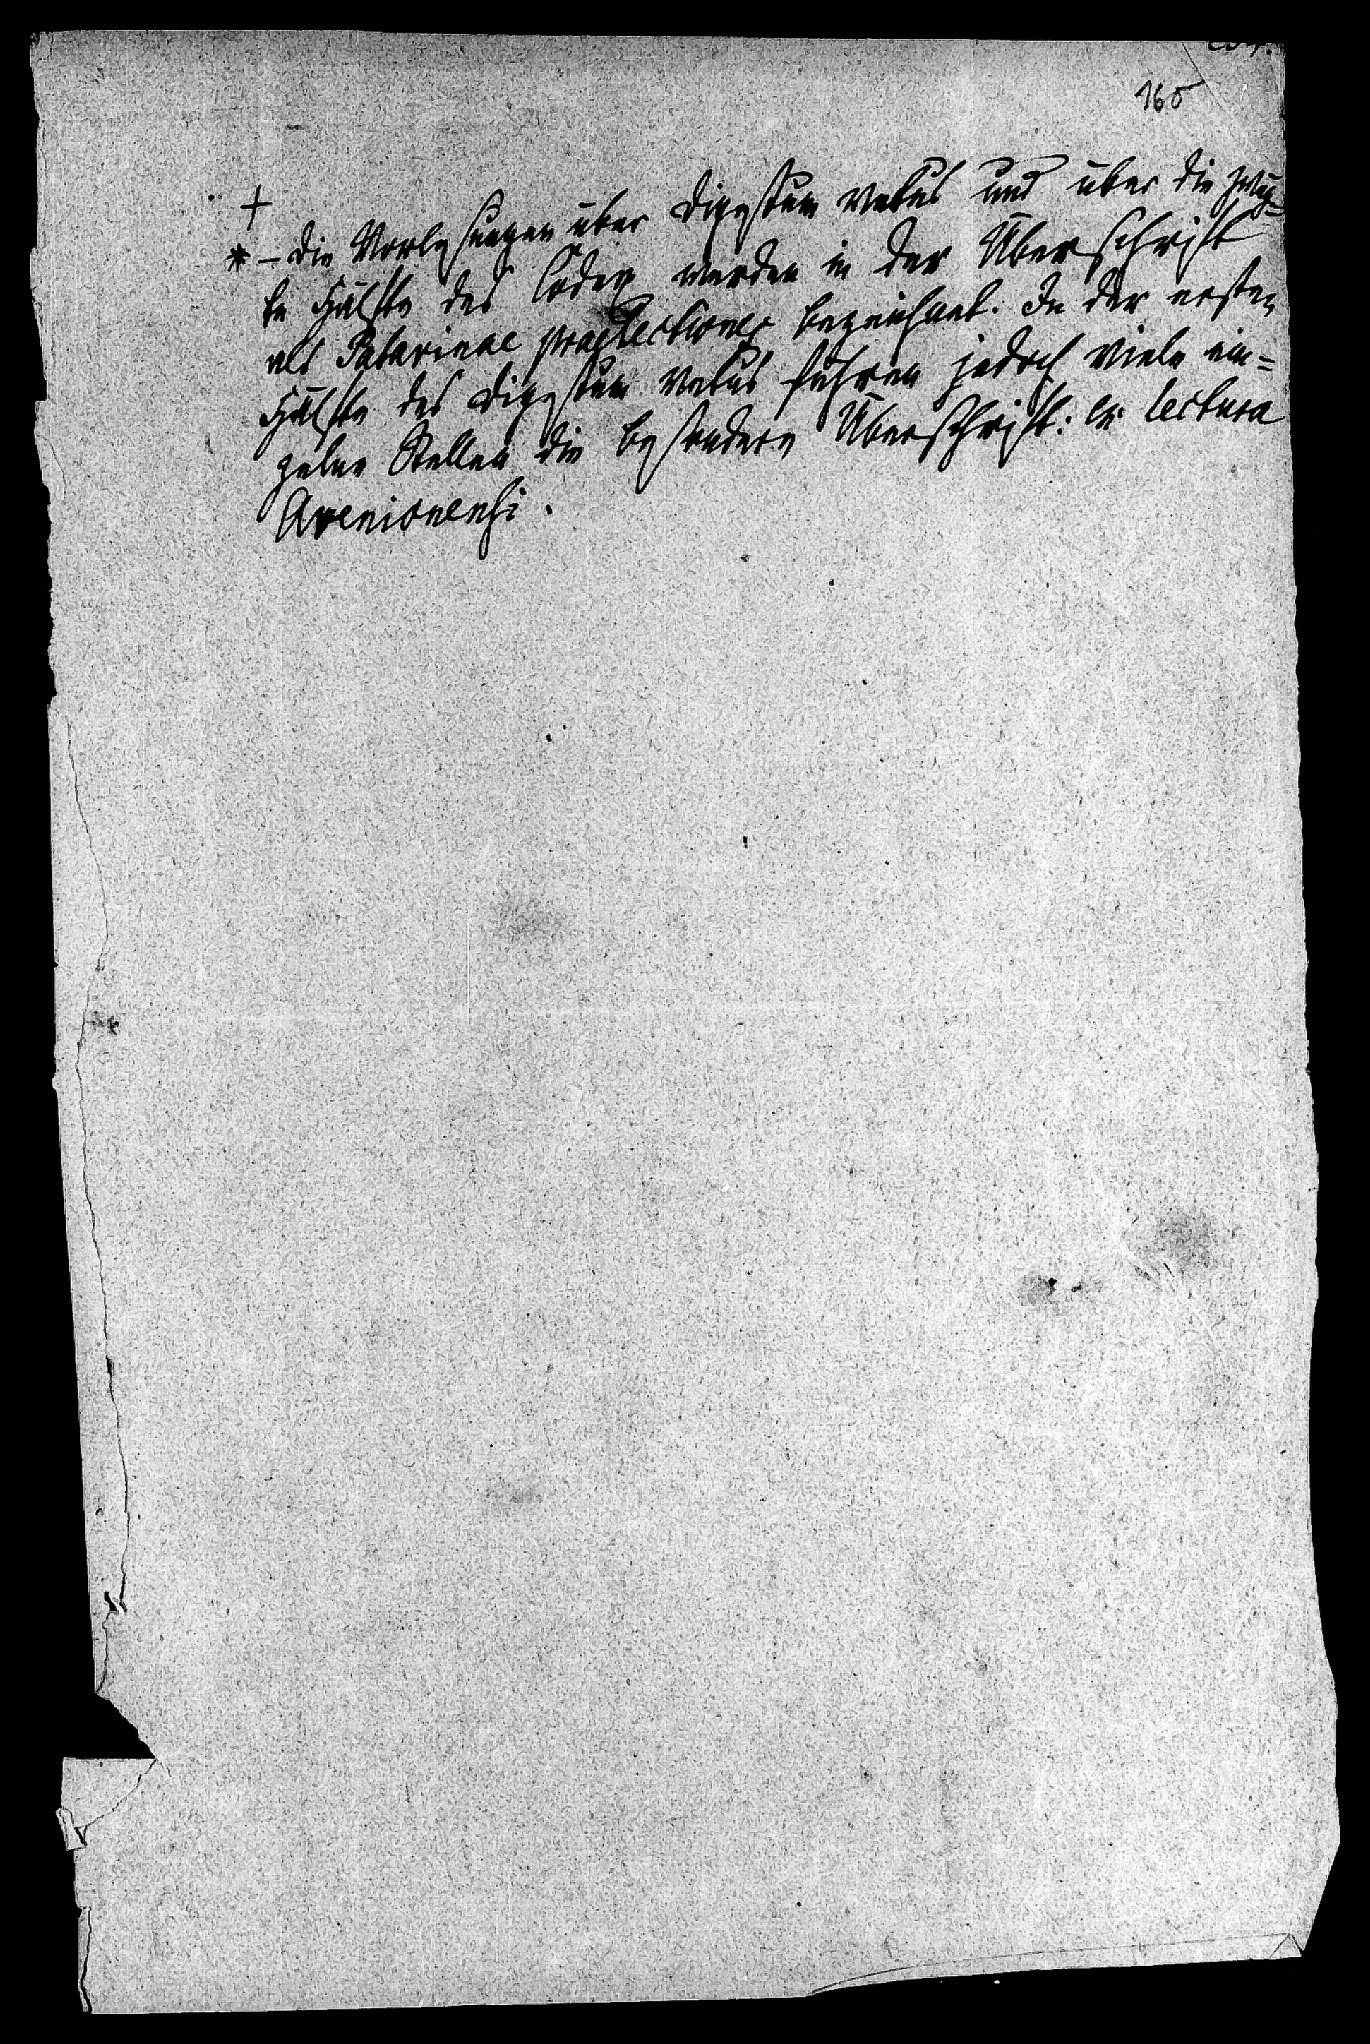 165
+
* – Die Vorlesungen über Digestum vetus und über die zwei-
te Hälfte des Codex werden in der Überschrift
als Patavinae praelectiones bezeichnet. In der ersten
Hälfte des Digestum vetus führen jedoch viele ein=
zelne Stellen die besondere Überschrift: ex lectura
Avenionensi.